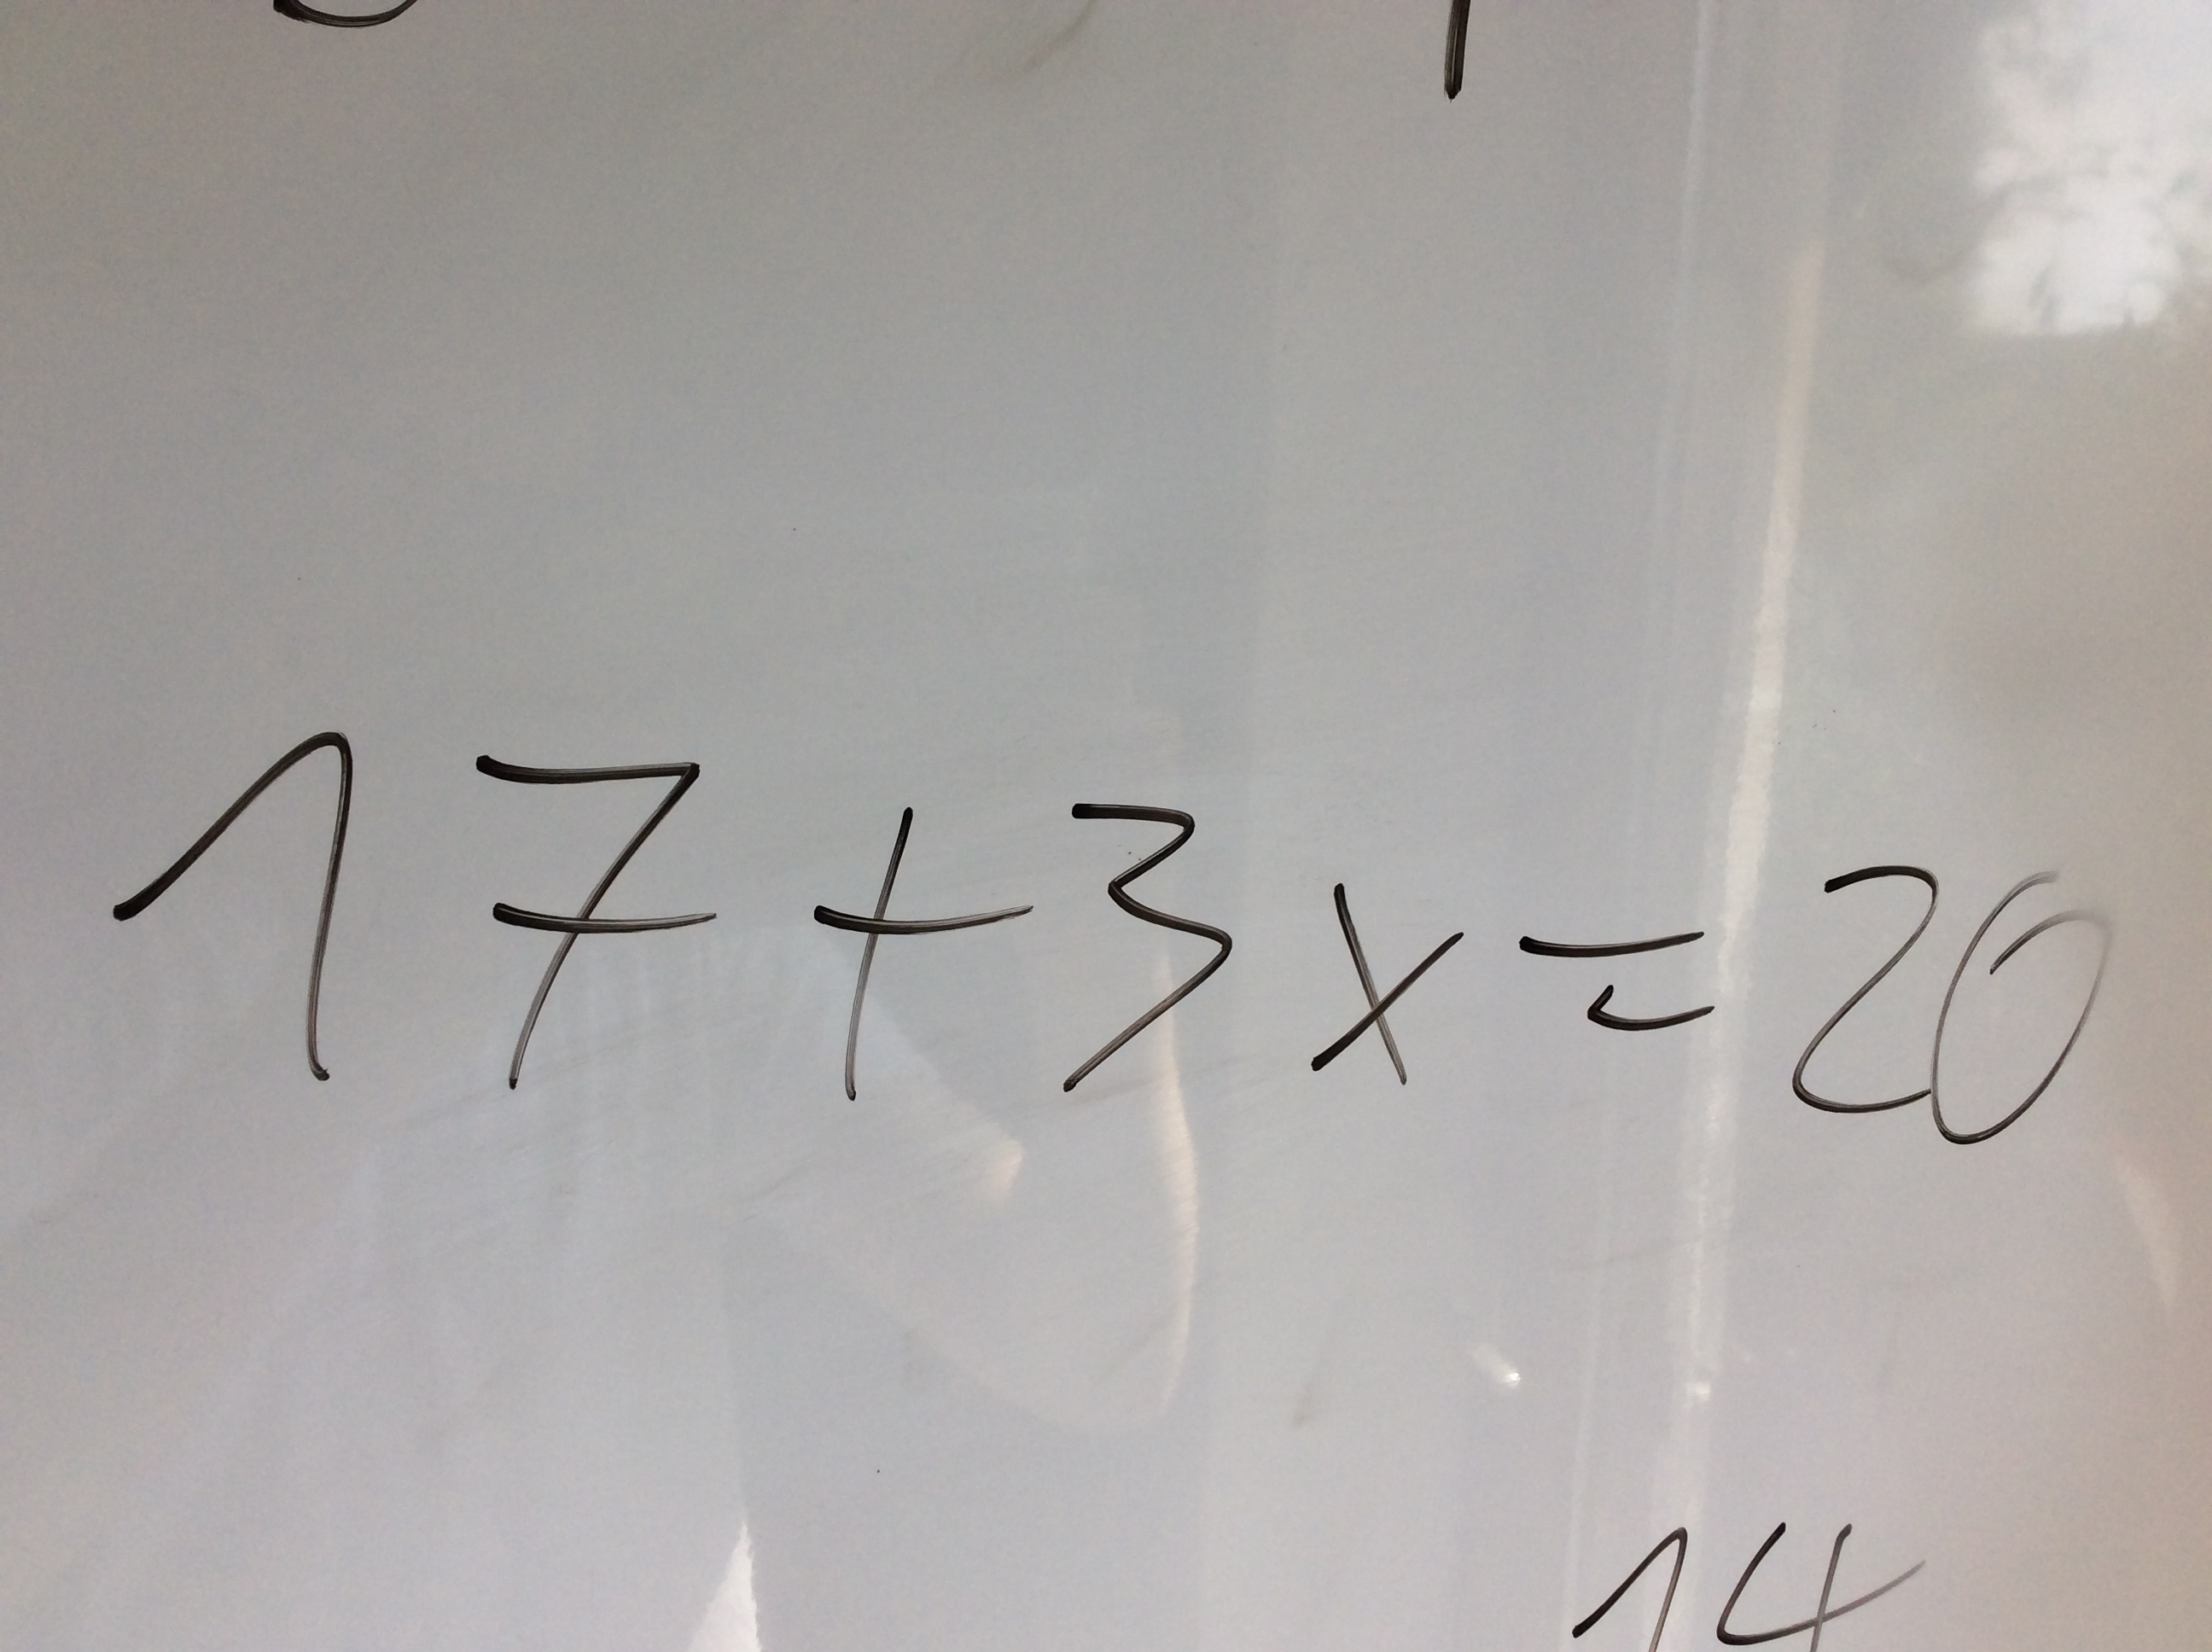 17+3x=20
14